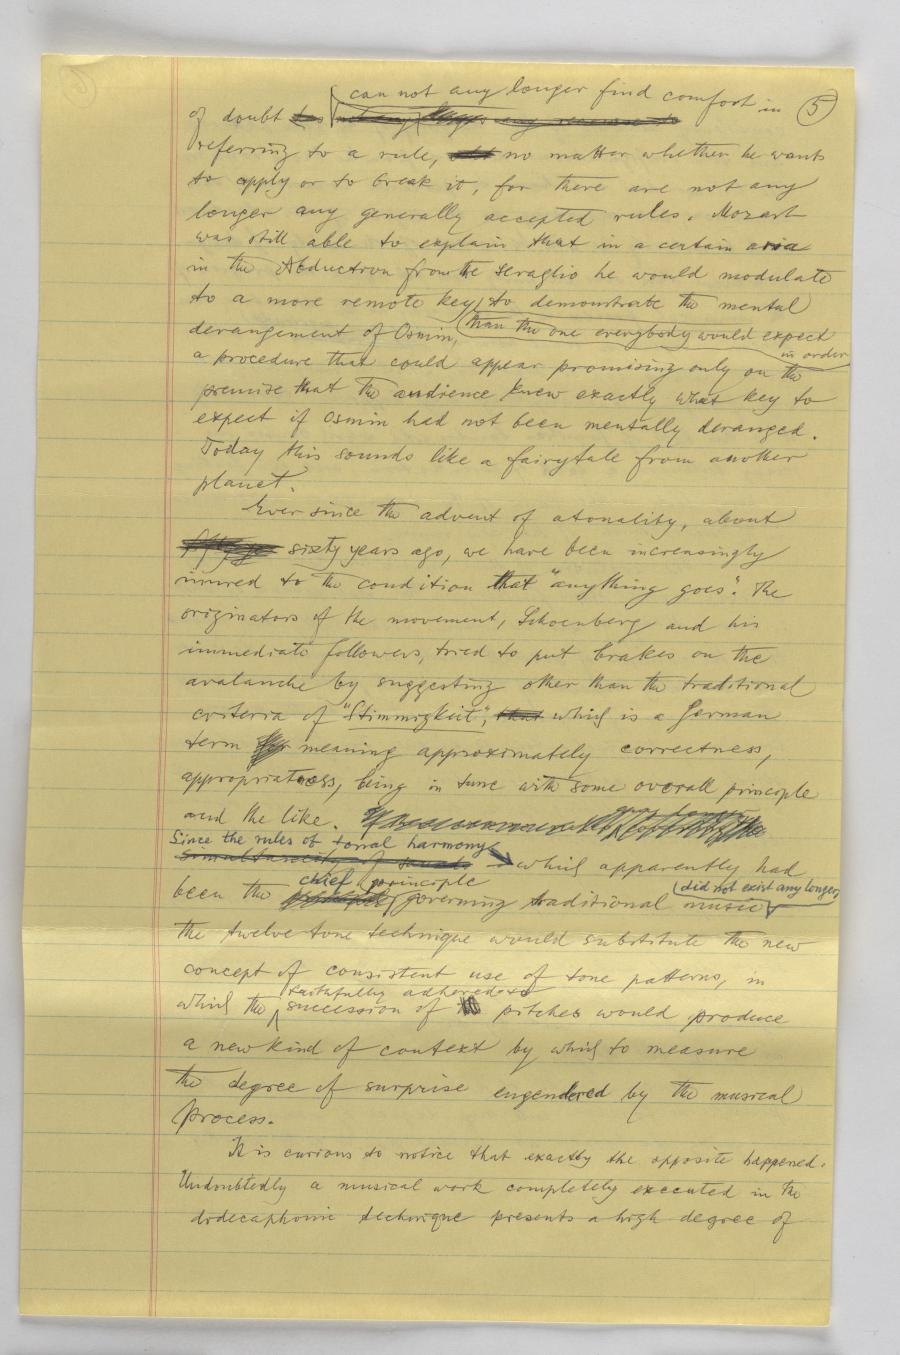 can not any longer find comfort in (5)
of doubt has not any longer any recourse to
referring to a rule, no matter whether he wants
to apply or to break it, for there are not any
longer any generally accepted rules. Mozart
was still able to explain that in a certain aria
in the Abduction from the Seraglio he would modulate
to a more remote key to demonstrate the mental
than the one everybody would expect
derangement of Osmin,
in order
a procedure that could appear promising only on the
premise that the audience knew exactly what key to
expect if Osmin had not been mentally deranged.
Today this sounds like a fairytale from another
planet.
Ever since the advent of atonality, about
sixty years ago, we have been increasingly
inured to the condition that "anything goes". The
originators of the movement, Schoenberg and his
immediate followers, tried to put brakes on the
avalanche by suggesting other than the traditional
criteria of "Stimmigkeit", that which is a German
term meaning approximately correctness,
appropriateness, being in tune with some overall principle
and the like.
Since the rules of tonal harmony
simultaneity of sounds which apparently had
chief principle
did not exist any longer,
been the governing traditional music
the twelve-tone technique would substitute the new
concept of consistent use of tone patterns, in
faithfully adhered-to
which the succession of pitches would produce
a new kind of context by which to measure
the degree of surprise engendered by the musical
process.
It is curious to notice that exactly the opposite happened.
Undoubtedly a musical work completely executed in the
dodecaphonic technique presents a high degree of